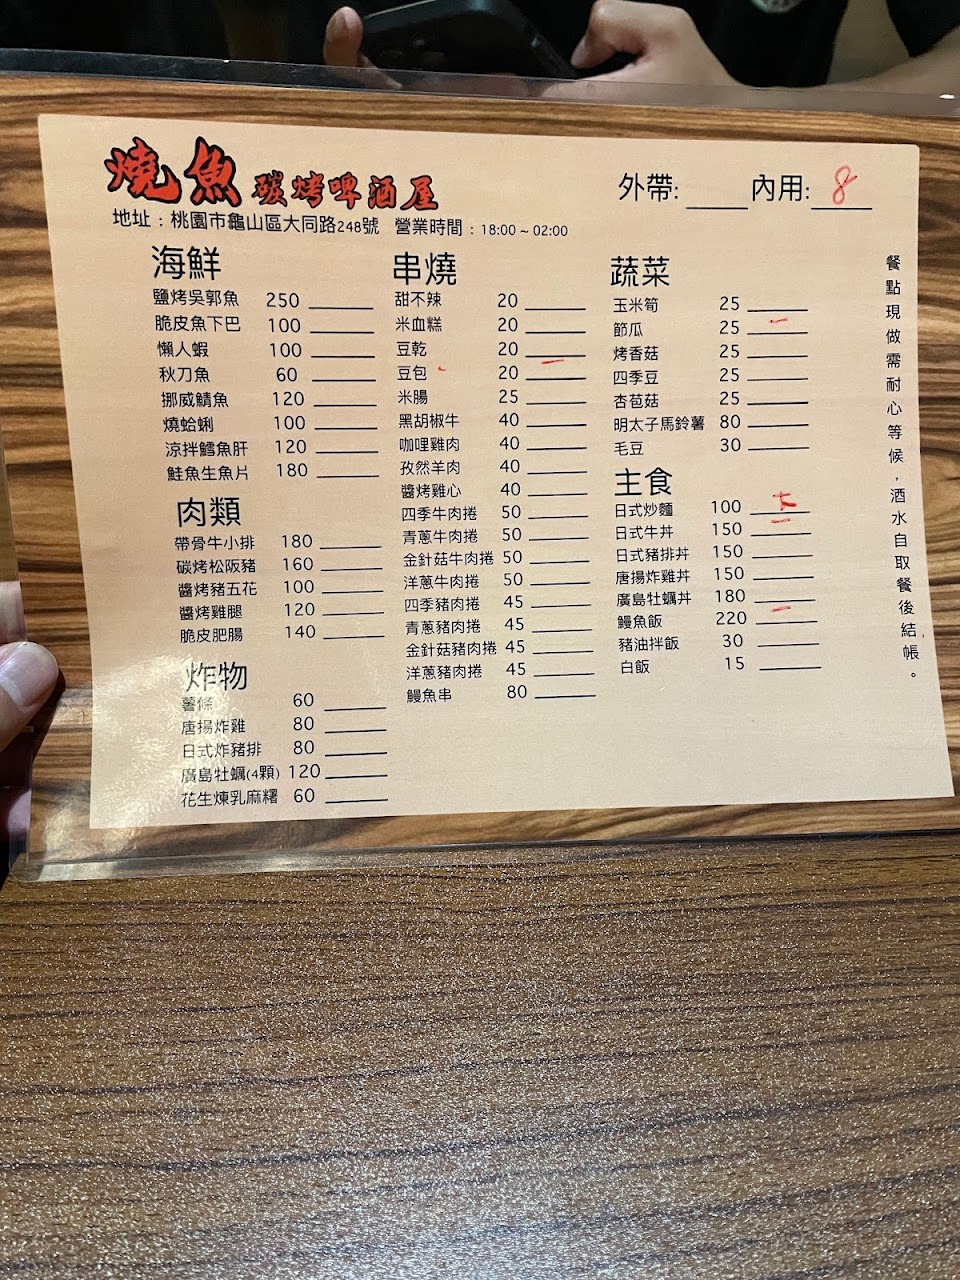 燒魚 碳烤啤酒屋
外帶: 內用: 8
地址：桃園市龜山區大同路248號 營業時間：18:00 ~ 02:00
海鮮
鹽烤吳郭魚 250
脆皮魚下巴 100
懶人蝦 100
秋刀魚 60
挪威鯖魚 120
燒蛤蜊 100
涼拌鱈魚肝 120
鮭魚生魚片 180
肉類
帶骨牛小排 180
碳烤松阪豬 160
醬烤豬五花 100
醬烤雞腿 120
脆皮肥腸 140
炸物
薯條 60
唐揚炸雞 80
日式炸豬排 80
廣島牡蠣(4顆) 120
花生煉乳麻糬 60
串燒
甜不辣 20
米血糕 20
豆乾 20
豆包 20
米腸 25
黑胡椒牛 40
咖哩雞肉 40
孜然羊肉 40
醬烤雞心 40
四季牛肉捲 50
青蔥牛肉捲 50
金針菇牛肉捲 50
洋蔥牛肉捲 50
四季豬肉捲 45
青蔥豬肉捲 45
金針菇豬肉捲 45
洋蔥豬肉捲 45
鰻魚串 80
蔬菜
玉米筍 25
節瓜 25
烤香菇 25
四季豆 25
杏苞菇 25
明太子馬鈴薯 80
毛豆 30
主食
日式炒麵 100
日式牛丼 150
日式豬排丼 150
唐揚炸雞丼 150
廣島牡蠣丼 180
鰻魚飯 220
豬油拌飯 30
白飯 15
餐點現做需耐心等候，酒水自取餐後結帳。